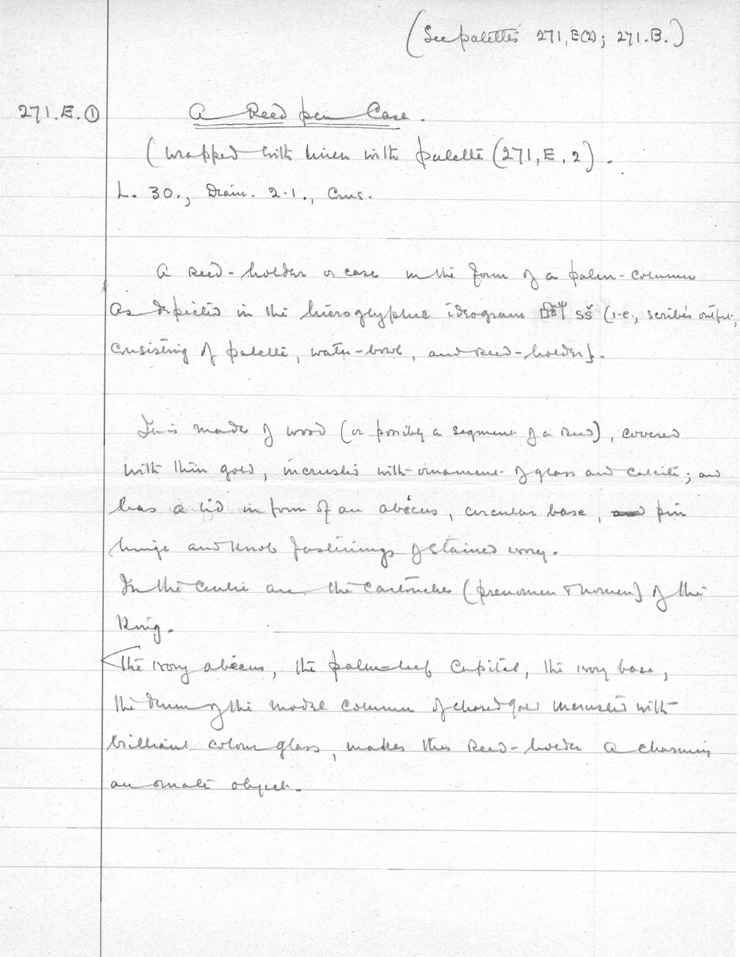 (See palettes 271,E(2); 271.B.)
271.E.① A Reed pen Case.
(wrapped with linen with palette (271,E,2).
L. 30., Diam. 2·1., Cms.
A reed-holder or case in the form of a palm-column
as depicted in the hieroglyphic ideogram 𓏞 sš (i.e., scribe's outfit,
consisting of palette, water-bowl, and reed-holder).
It is made of wood (or possibly a segment of a reed), covered
with thin gold, incrusted with ornament of glass and calcite; and
has a lid in form of an abacus, circular base, pin
hinge and knob fastenings of stained ivory.
In the centre are the cartouches (prenomen & nomen) of the
King.
The ivory abacus, the palm-leaf capital, the ivory base,
the drum of the model column of chased gold incrusted with
brilliant colour glass, makes this reed-holder a charming
an ornate object.